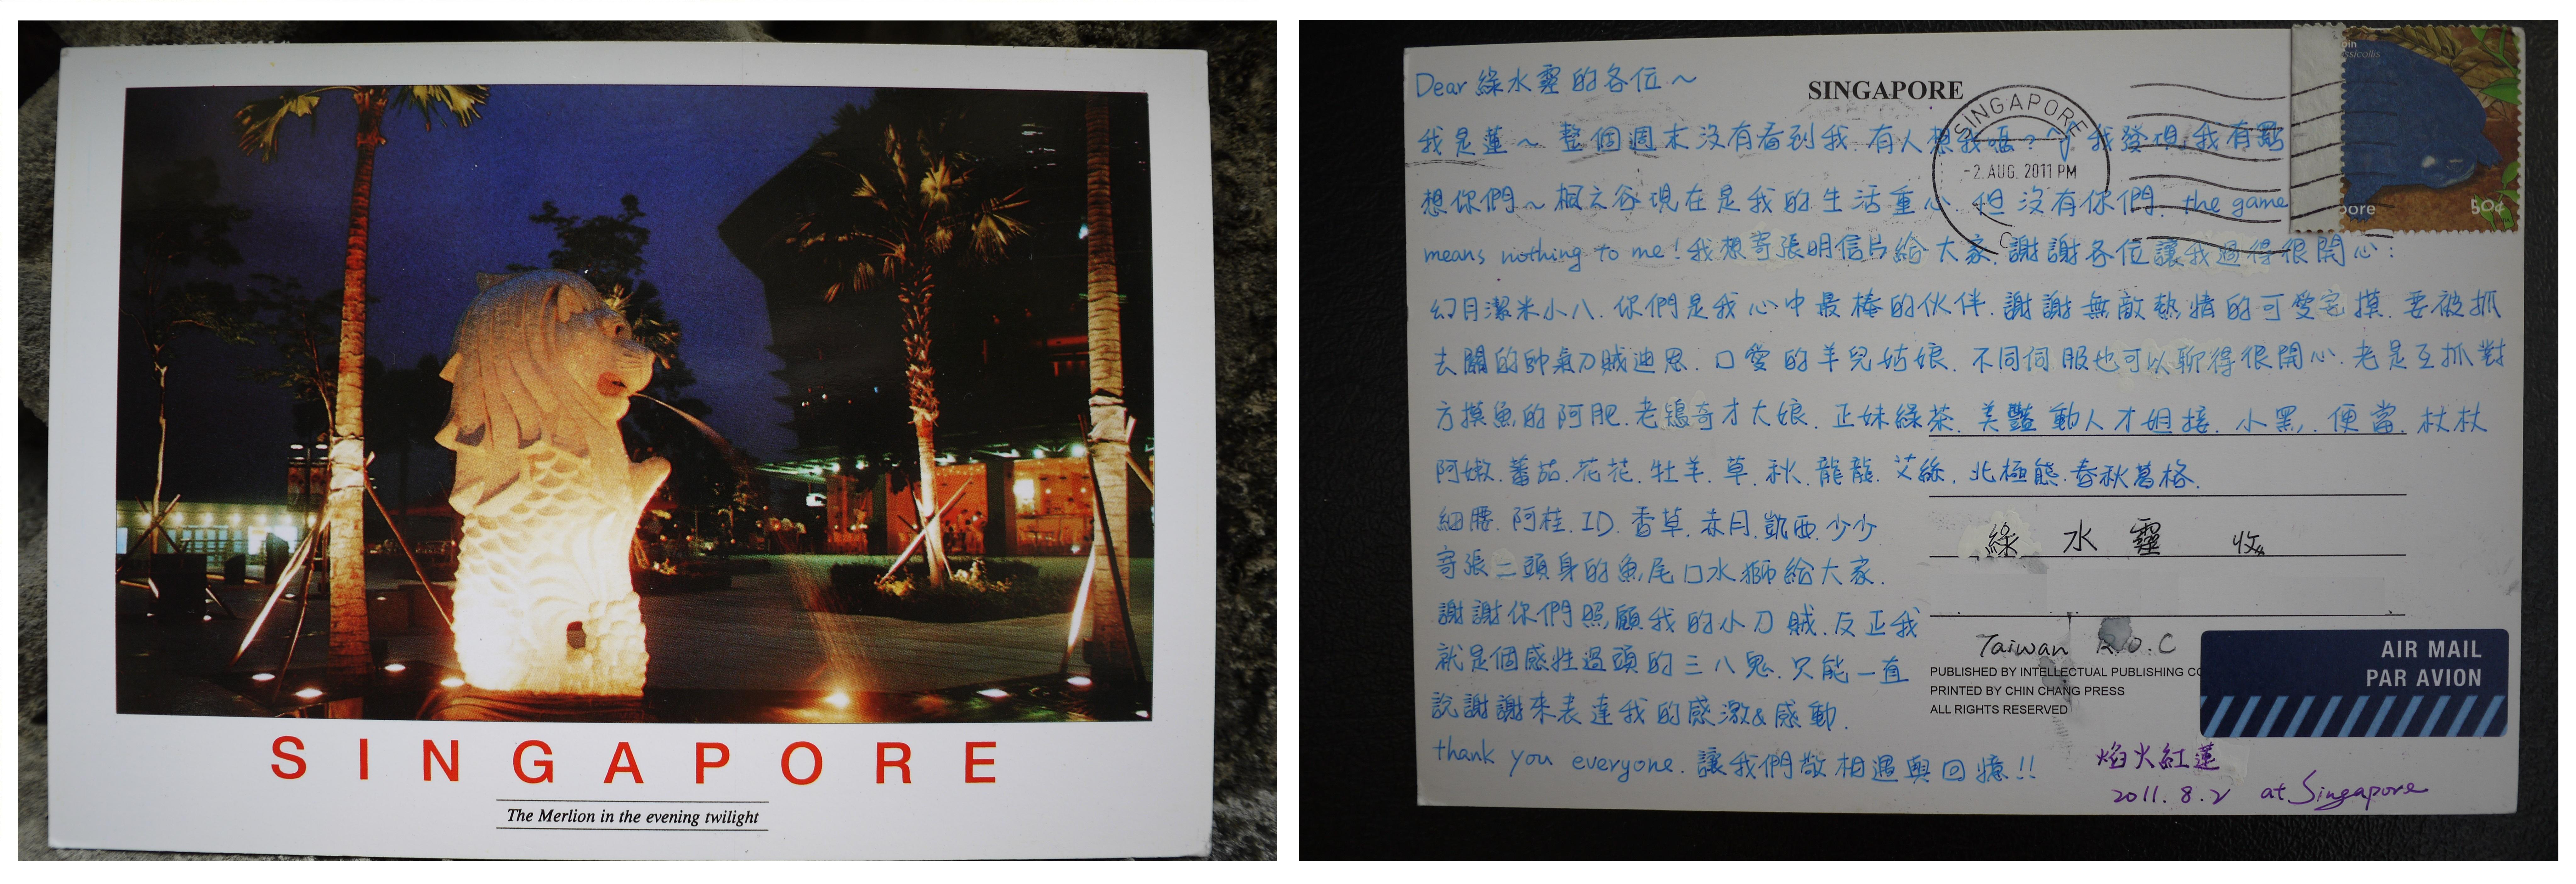 SINGAPORE
The Merlion in the evening twilight
SINGAPORE
SINGAPORE
-2.AUG.2011 PM
50¢
Dear 綠水靈的各位~
我是蓮~ 整個週末沒有看到我.有人想我嗎? 我發現我有點
想你們~楓之谷現在是我的生活重心 但沒有你們. the game
means nothing to me!我想寄張明信片給大家.謝謝各位讓我過得很開心:
幻月潔米小八.你們是我心中最棒的伙伴.謝謝無敵熱情的可愛宅摸.要被抓
去關的帥氣刀賊迪恩.口愛的羊兒姑娘.不同伺服也可以聊得很開心.老是互抓對
方摸魚的阿肥.老鴇奇才大娘.正妹綠茶.美豔動人才姐接.小黑.便當.杖杖
阿嫩.蕃茄.花花.牡羊.草.秋.龍龍.艾絲.北極熊.春秋萬格.
細腰.阿桂.ID.香草.赤月.凱西.少少
寄張二頭身的魚尾口水獅給大家.
謝謝你們照顧我的小刀賊.反正我
就是個感性過頭的三八鬼.只能一直
說謝謝來表達我的感激&感動.
thank you everyone.讓我們敬相遇與回憶!!
綠水靈 收
Taiwan R.O.C
PUBLISHED BY INTELLECTUAL PUBLISHING CO
PRINTED BY CHIN CHANG PRESS
ALL RIGHTS RESERVED
AIR MAIL
PAR AVION
焰火紅蓮
2011.8.2 at Singapore